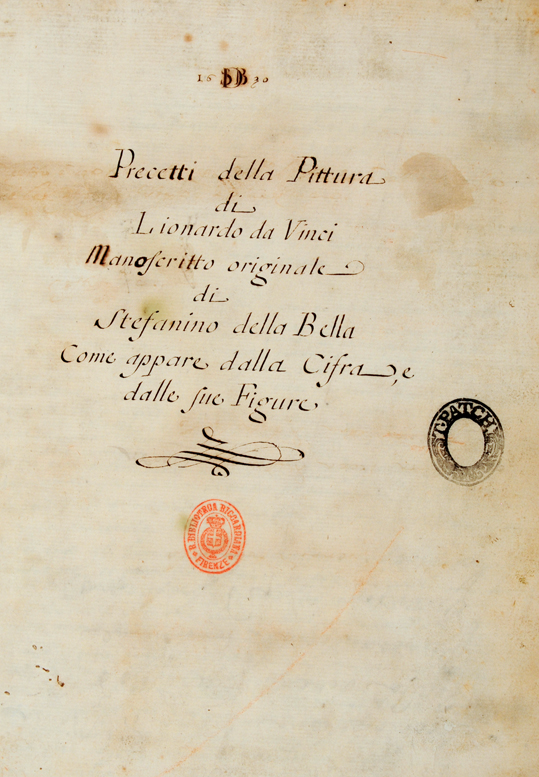 16 SDB 30
Precetti della Pittura
di
Lionardo da Vinci
Manoscritto originale
di
Stefanino della Bella
Come appare dalla Cifra, e
dalle sue Figure
T. PATCH
R. BIBLIOTECA RICCARDIANA
FIRENZE